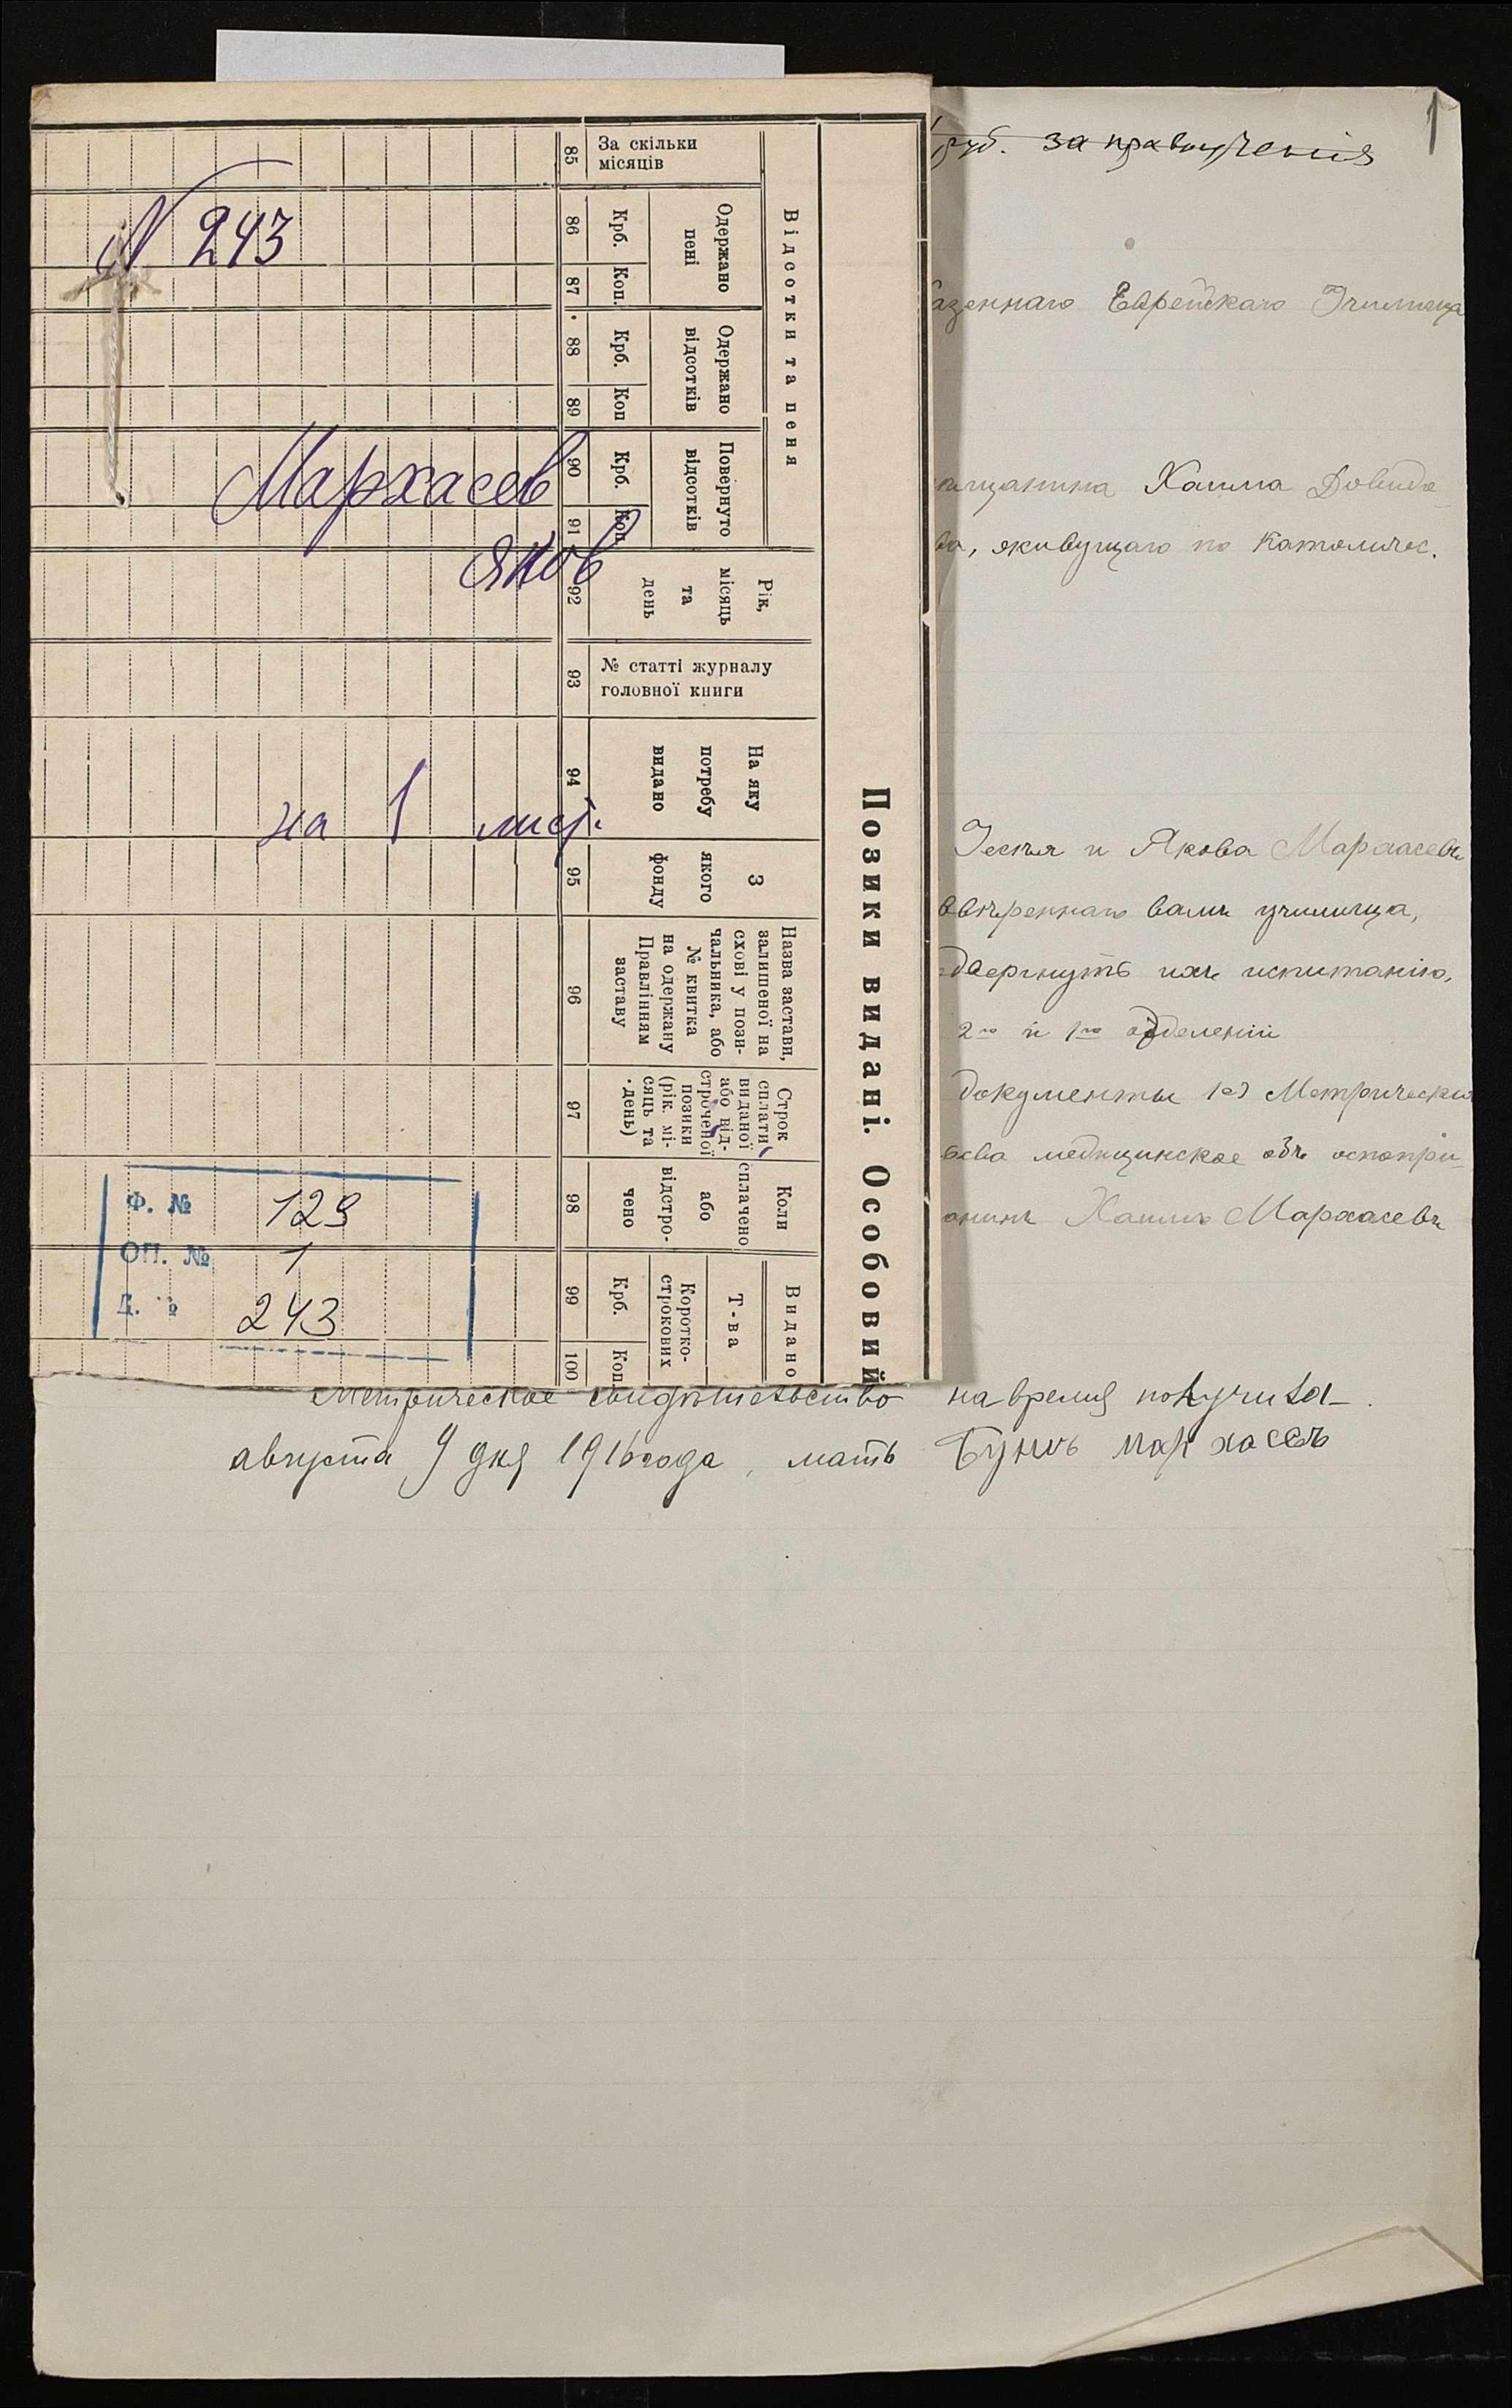 N 243
Мархасев
Яков
на 1 лист.
Ф. № 129
ОП. № 1
Д. № 243
Позики видані. Особовий
Відсотки та пеня
За скільки місяців
Одержано пені
Одержано відсотків
Повернуто відсотків
Крб.
Коп.
Крб.
Коп
Крб.
Коп
Рік, місяць та день
№ статті журналу головної книги
На яку потребу видано
З якого фонду
Назва застави, залишеної на схові у пози-
чальника, або № квитка на одержану Правлінням заставу
Строк сплати виданої або від-
строченої позики (рік, мі-
сяць та день)
Коли сплачено або відстро-
чено
Видано
Т-ва
Коротко-
строкових
Крб.
Коп.
85 86 87 88 89 90 91 92 93 94 95 96 97 98 99 100
1
руб. за правоученія
азеннаго Еврейскаго Училища
мѣщанина Хаима Довидо-
ва, живущаго по Католичес.
и Якова Мархасевъ
ввѣреннаго вамъ училища,
двергнуть ихъ испытанію,
2го и 1го отделеній
документы 1е) Метрически
ства медицинское объ оспопри-
анинъ Хаимъ Мархасевъ
Метрическое свидѣтельство на время получила
августа 9 дня 1916 года, мать Буня Мархасевъ